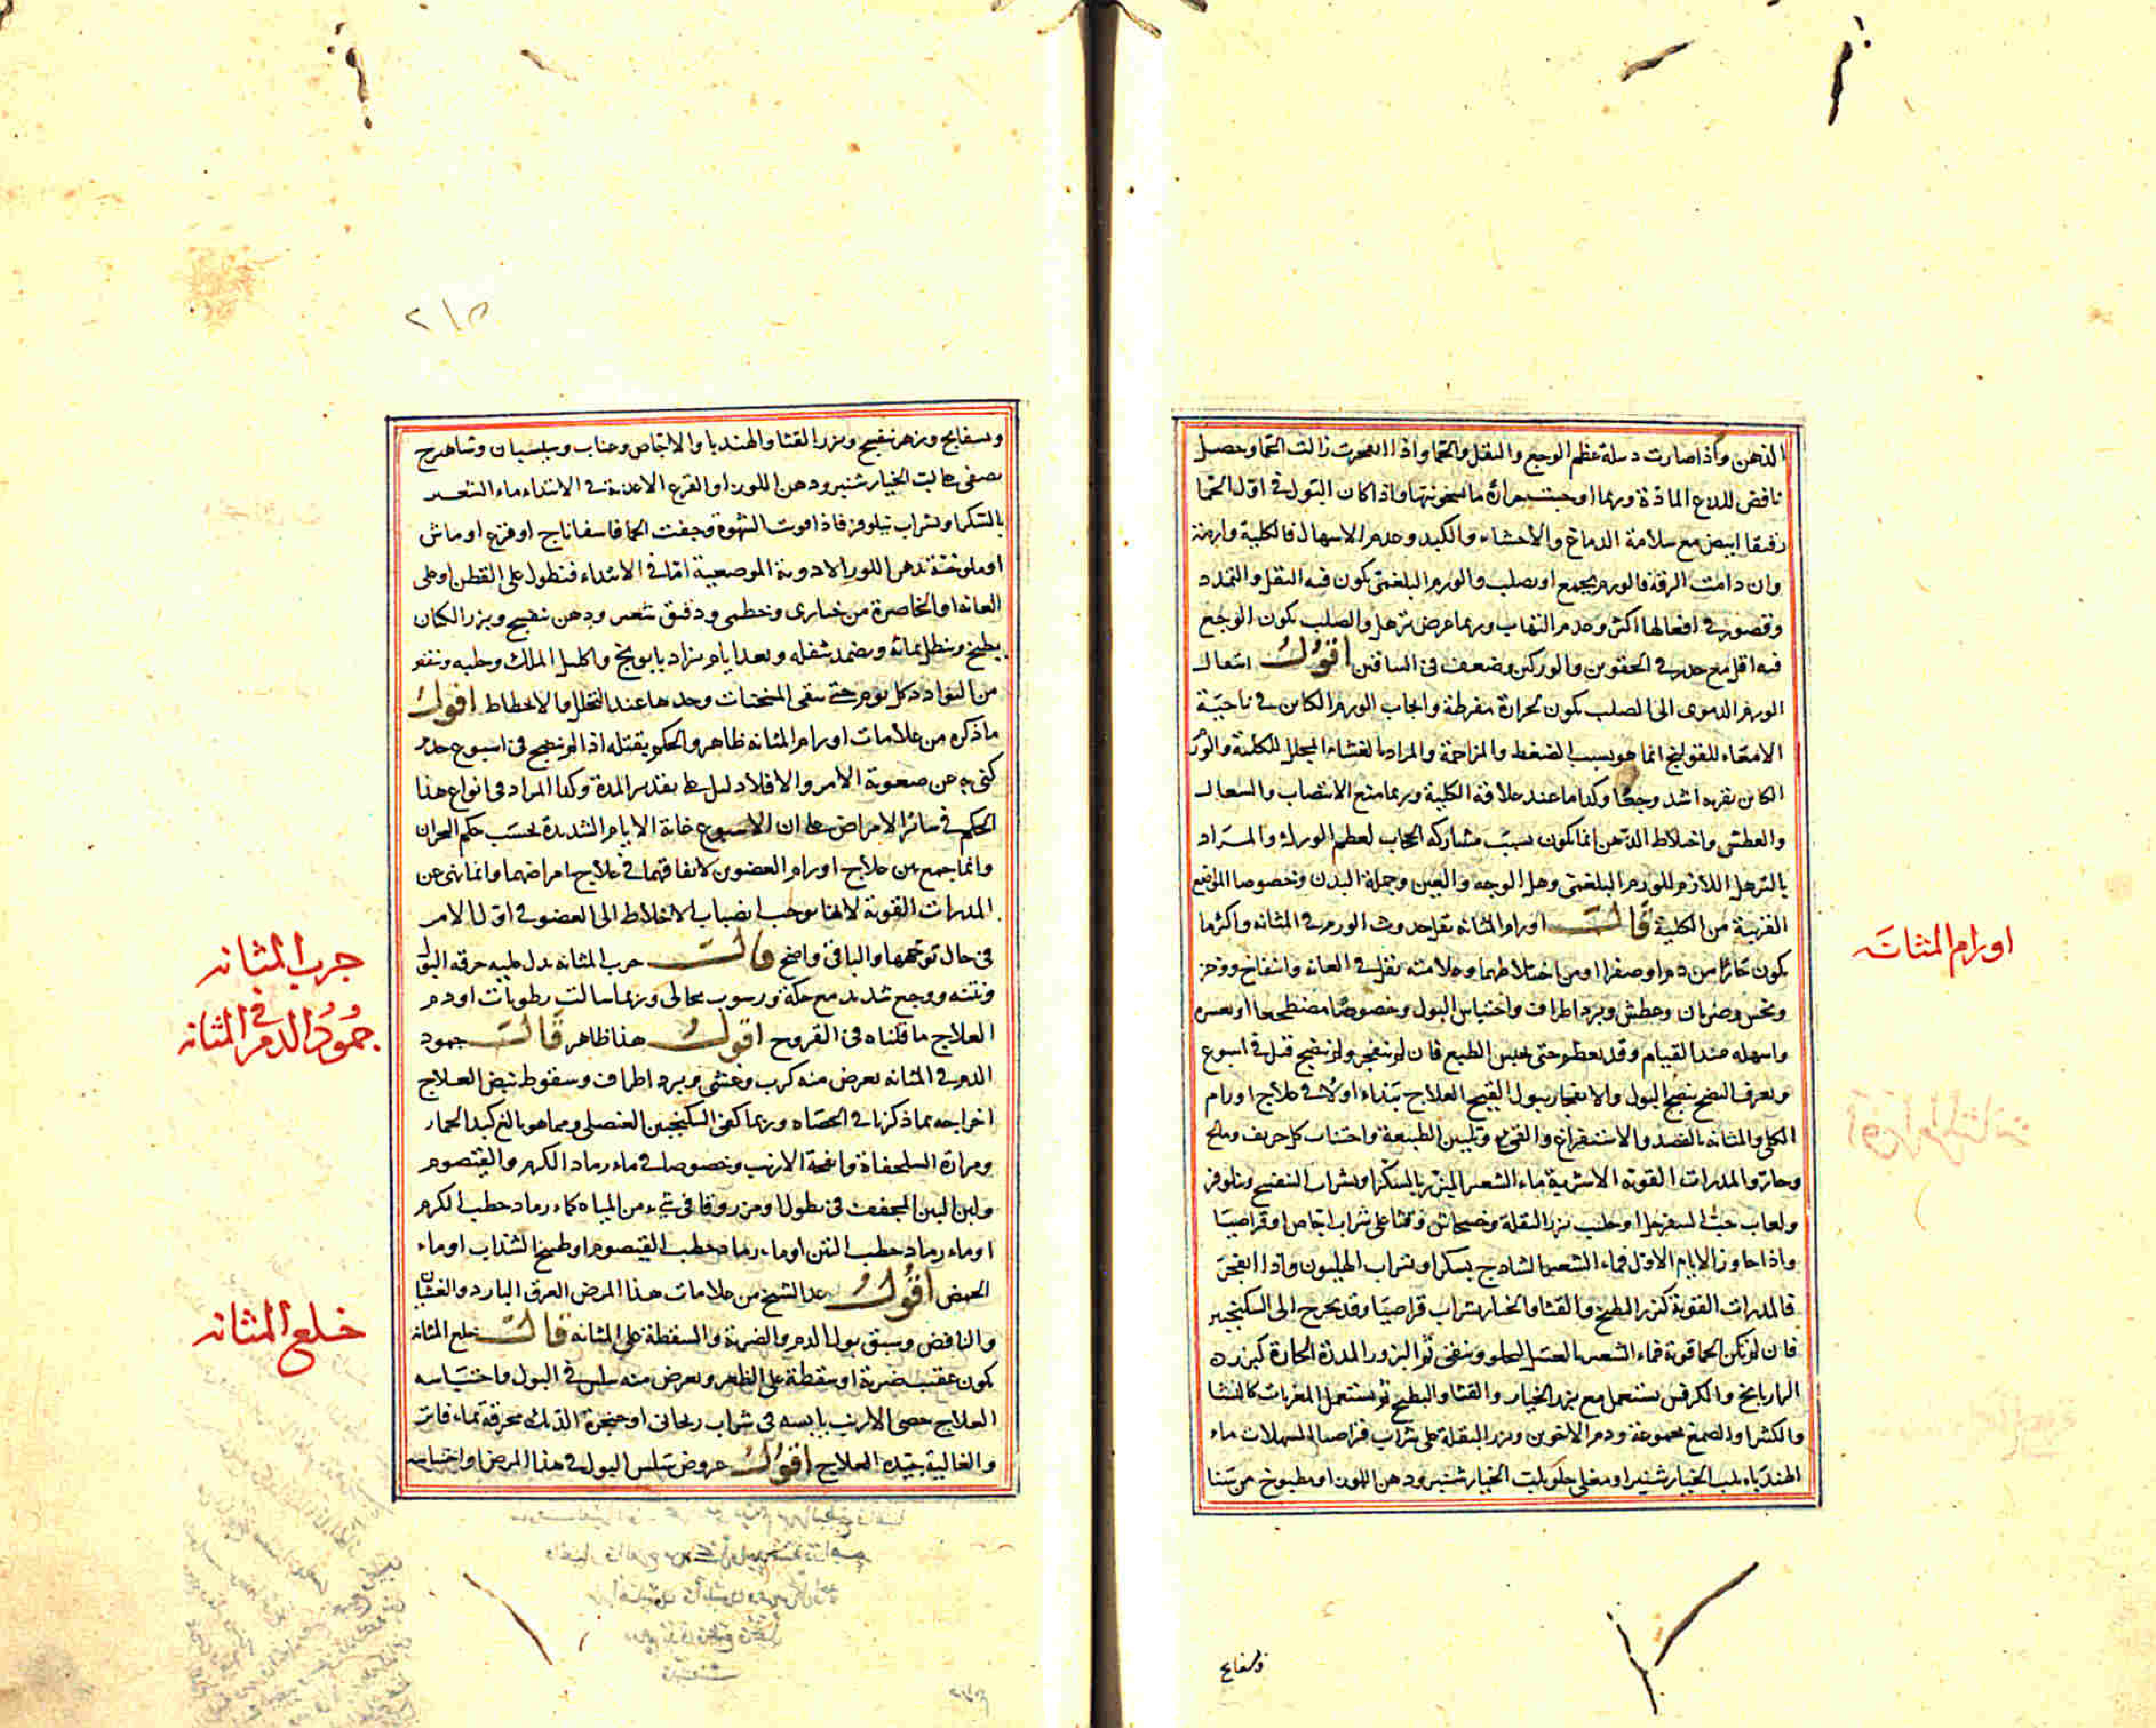 الذهن واذا صارت دبيلة عظم الوجع والثقل والحما واذا انفجرت زالت الحما وحصل
نافض للدع المادة وربما اوجبت حرارة ما سخونتها واذا كان البول في اول الحما
رقيقا ابيض مع سلامة الدماغ والاحشاء والكبد وعدم الاسهال فالكلية وارمة
وان دامت الرقة فالورم يجمع او يصلب والورم البلغمى يكون فيه الثقل والتمدد
وقصور في افعالها اكثر وعدم التهاب وربما عرض ترهل والصلب يكون الوجع
فيه اقل مع خدر في الحقوين والوركين وضعف في الساقين اقول انتعال
الورم الدموى الى الصلب يكون لحرارة مفرطة وايجاب الورم الكاين في ناحية
الامعاء للقولنج انما هو بسبب الضغط والمزاحمة والمراد بالغشاء المجلل للكلية والورم
الكاين بقربه اشد وجعا وكذا ما عند علاقة الكلية وربما منع الانتصاب والسعال
والعطش واختلاط الذهن انما يكون بسبب مشاركة الحجاب لعظم الورم والمراد
بالترهل اللازم للورم البلغمى وهل الوجه والعين وجملة البدن وخصوصا المواضع
القريبة من الكلية قال اورام المثانه يقل حدوث الورم في المثانه واكثرما
يكون حارا من دم او صفرا او من اختلاطهما وعلامته ثقل في العانه وانتفاخ ووخز
ونخس وضربان وعطش وبرد اطراف واحتباس البول وخصوصا مضطجعا او بعسره
واسهله عند القيام وقد يعظم حتى يحبس الطبع فان لم ينفجر ولم ينضج قتل في اسبوع
ويعرف النضج بنضج البول والانفجار ببول القيح العلاج يتبداء اولا في علاج اورام
الكلى والمثانه بالفصد والاستفراغ والقى وتليين الطبيعة واجتناب كل حريف ومالح
وحار والمدرات القوية الاشربة ماء الشعير المبزر بالسكر او بشراب البنفسج ونيلوفر
ولعاب حب السفرجل او حليب بزر البقلة وخيار وقثا على شراب اجاص او قراصيا
واذا جاوز الايام الاول فماء الشعير الساذج بسكر او بشراب الهليون واذا انفجر
فالمدرات القوية كبزر البطيخ والقثا والخيار بشراب قراصيا وقد يحوج الى السكنجبين
فان لم تكن الحما قوية فماء الشعير بالعسل الحلو وينقى ثم البزور المدرة الحارة كبزر
الرازيانج والكرفس يستعمل مع بزر الخيار والقثا والبطيخ ثم يستعمل المغريات كالنشا
والكثيرا والصمغ مجموعة ودم الاخوين وبزر البقلة على شراب قراصيا المسهلات ماء
الهندباء بلب الخيار شنبر او مغلى حلو بلب الخيار شنبر ودهن اللوز او مطبوخ من سنا
اورام المثانة
وبسفايج
٢١٥
وبسفايج وزهر بنفسج وبزر القثا والهندبا والاجاص وعناب وسبستان وشاهترج
يصفى على لب الخيار شنبر ودهن اللوز او القرع الاغذية في الابتداء ماء الشعير
بالسكر او بشراب نيلوفر فاذا قويت الشهوة وخفت الحما فاسفاناج او قرع او ماش
او ملوخية بدهن اللوز الادوية الموضعية اما في الابتداء فنطول على القطن او على
العانه او الخاصرة من خبازى وخطمى ودقيق شعير ودهن بنفسج وبزر الكتان
يطبخ وينطل بمائه ويضمد بثفله وبعد ايام يزاد بابونج واكليل الملك وحلبه وينقص
من البوارد كل يوم حتى يبقى المسخنات وحدها عند التحلل والانحطاط اقول
ما ذكره من علامات اورام المثانه ظاهر والحكم بقتله اذا لم ينضج في اسبوع
كنى به عن صعوبة الامر والا فلا دليل على تقدير المدة وكذا المراد في انواع هذا
الحكم في سائر الامراض على ان الاسبوع غاية الايام الشديدة بحسب حكم البحران
وانما جمع بين علاج اورام العضوين لاتفاقهما في علاج امراضهما وانما نهى عن
المدرات القوية لانها توجب انصباب الاخلاط الى العضو في اول الامر
في حال توجهها والباقى واضح قال جرب المثانه يدل عليه حرقه البول
ونتنه ووجع شديد مع حكة ورسوب نخالى وربما سالت رطوبات او دم
العلاج ما قلناه في القروح اقول هذا ظاهر قال جمود
الدم في المثانه يعرض منه كرب وغشى وبرد اطراف وسقوط نبض العلاج
اخراجه بما ذكرنا في الحصاه وربما كفى السكنجبين العنصلى ومما هو بالغ كبد الحمار
ومرارة السلحفاة وانفحة الارنب وخصوصا في ماء رماد الكرم والقيصوم
ولبن التين المجفف في نطول او مزروقا في شيء من المياه كماء رماد حطب الكرم
او ماء رماد حطب التين او ماء رماد حطب القيصوم او طبيخ السذاب او ماء
الحمص اقول عد الشيخ من علامات هذا المرض العرق البارد والغشيان
والنافض وسبق بول الدم والضربة والسقطة على المثانه قال خلع المثانه
يكون عقيب ضربة او سقطة على الظهر ويعرض منه سلس في البول واحتباسه
العلاج خصى الارنب يابسه في شراب ريحانى او حنجرة الديك محرقة بماء فاتر
والغالية جيدة العلاج اقول عروض سلس البول في هذا المرض او احتباسه
جرب المثانه
جمود الدم في المثانه
خلع المثانه